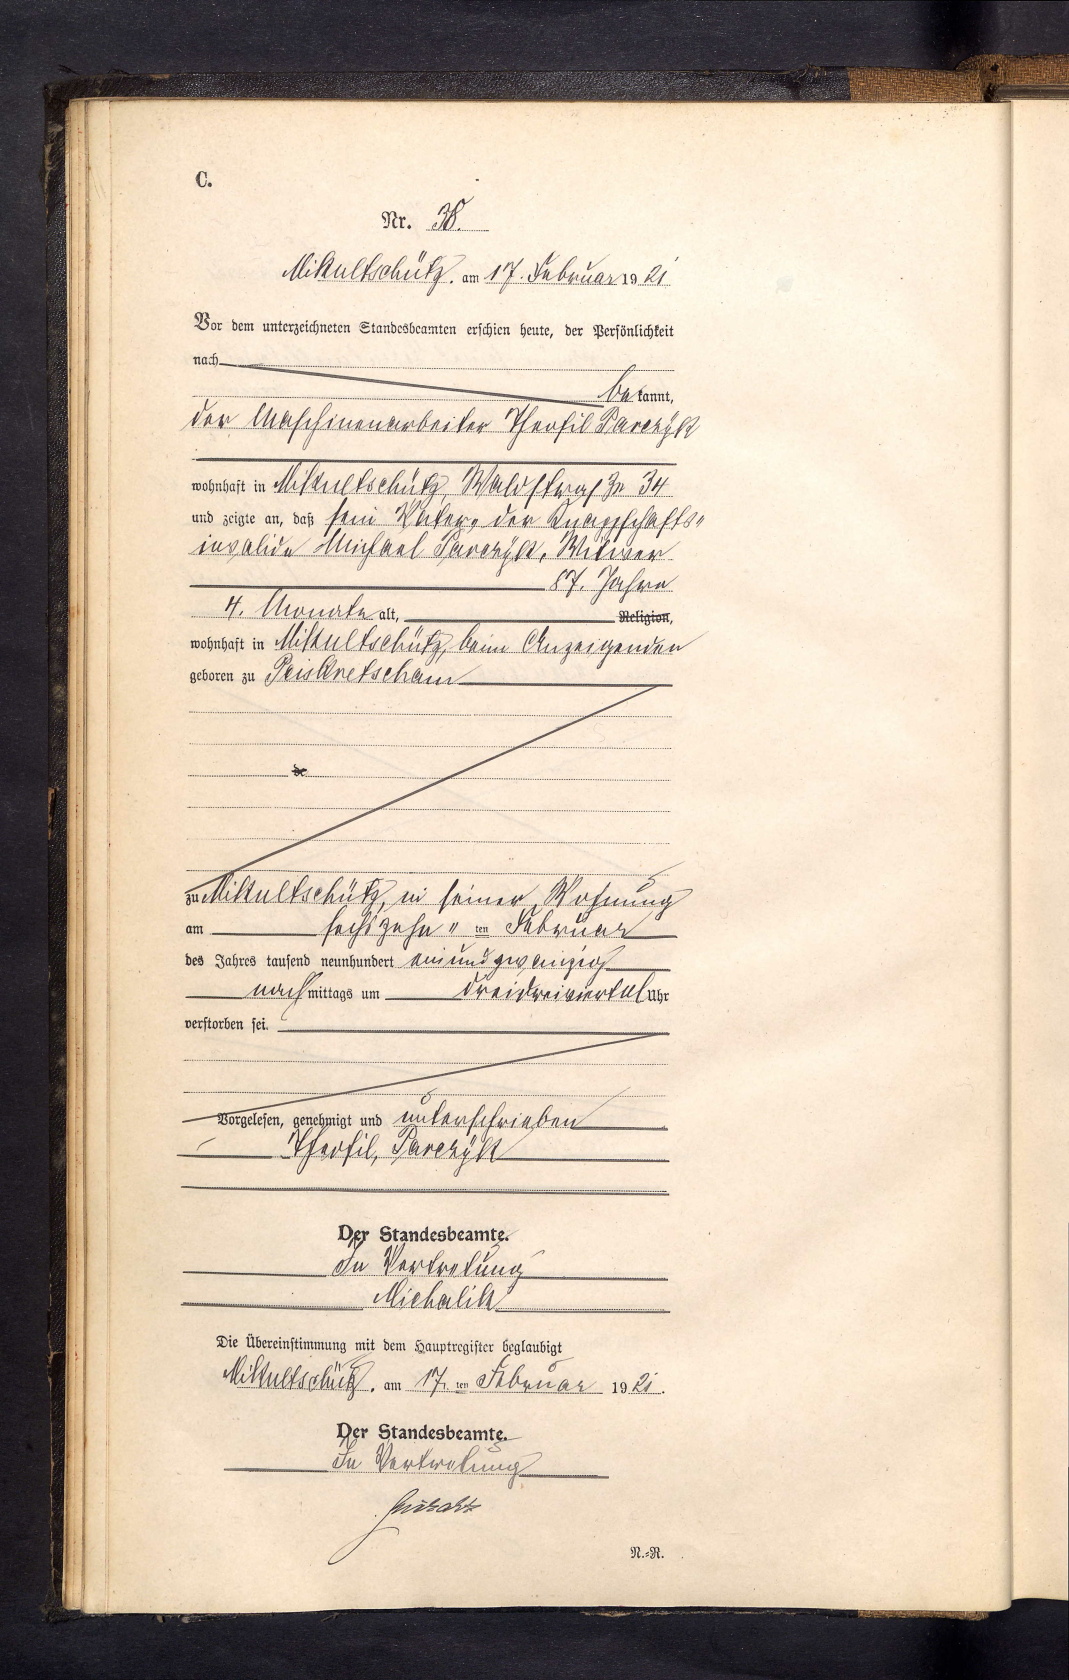 C.
Nr. 38.
Mikultschütz, am 17. Februar 1921
Vor dem unterzeichneten Standesbeamten erschien heute, der Persönlichkeit
nach
be kannt,
der Maschinenarbeiter Theofil Parczyk
wohnhaft in Mikultschütz, Waldstraße 34
und zeigte an, daß sein Vater, der Knappschafts-
invalide Michael Parczyk, Witwer
87. Jahre
4. Monate alt, Religion,
wohnhaft in Mikultschütz, beim Anzeigenden
geboren zu Peiskretscham
de
zu Mikultschütz, in seiner Wohnung
am sechszehn " ten Februar
des Jahres tausend neunhundert einundzwanzig
nach mittags um dreidreiviertel Uhr
verstorben sei.
Vorgelesen, genehmigt und unterschrieben
Theofil, Parczyk
Der Standesbeamte.
In Vertretung
Michalik
Die Übereinstimmung mit dem Hauptregister beglaubigt
Mikultschütz, am 17. ten Februar 1921.
Der Standesbeamte.
In Vertretung
N.-R.